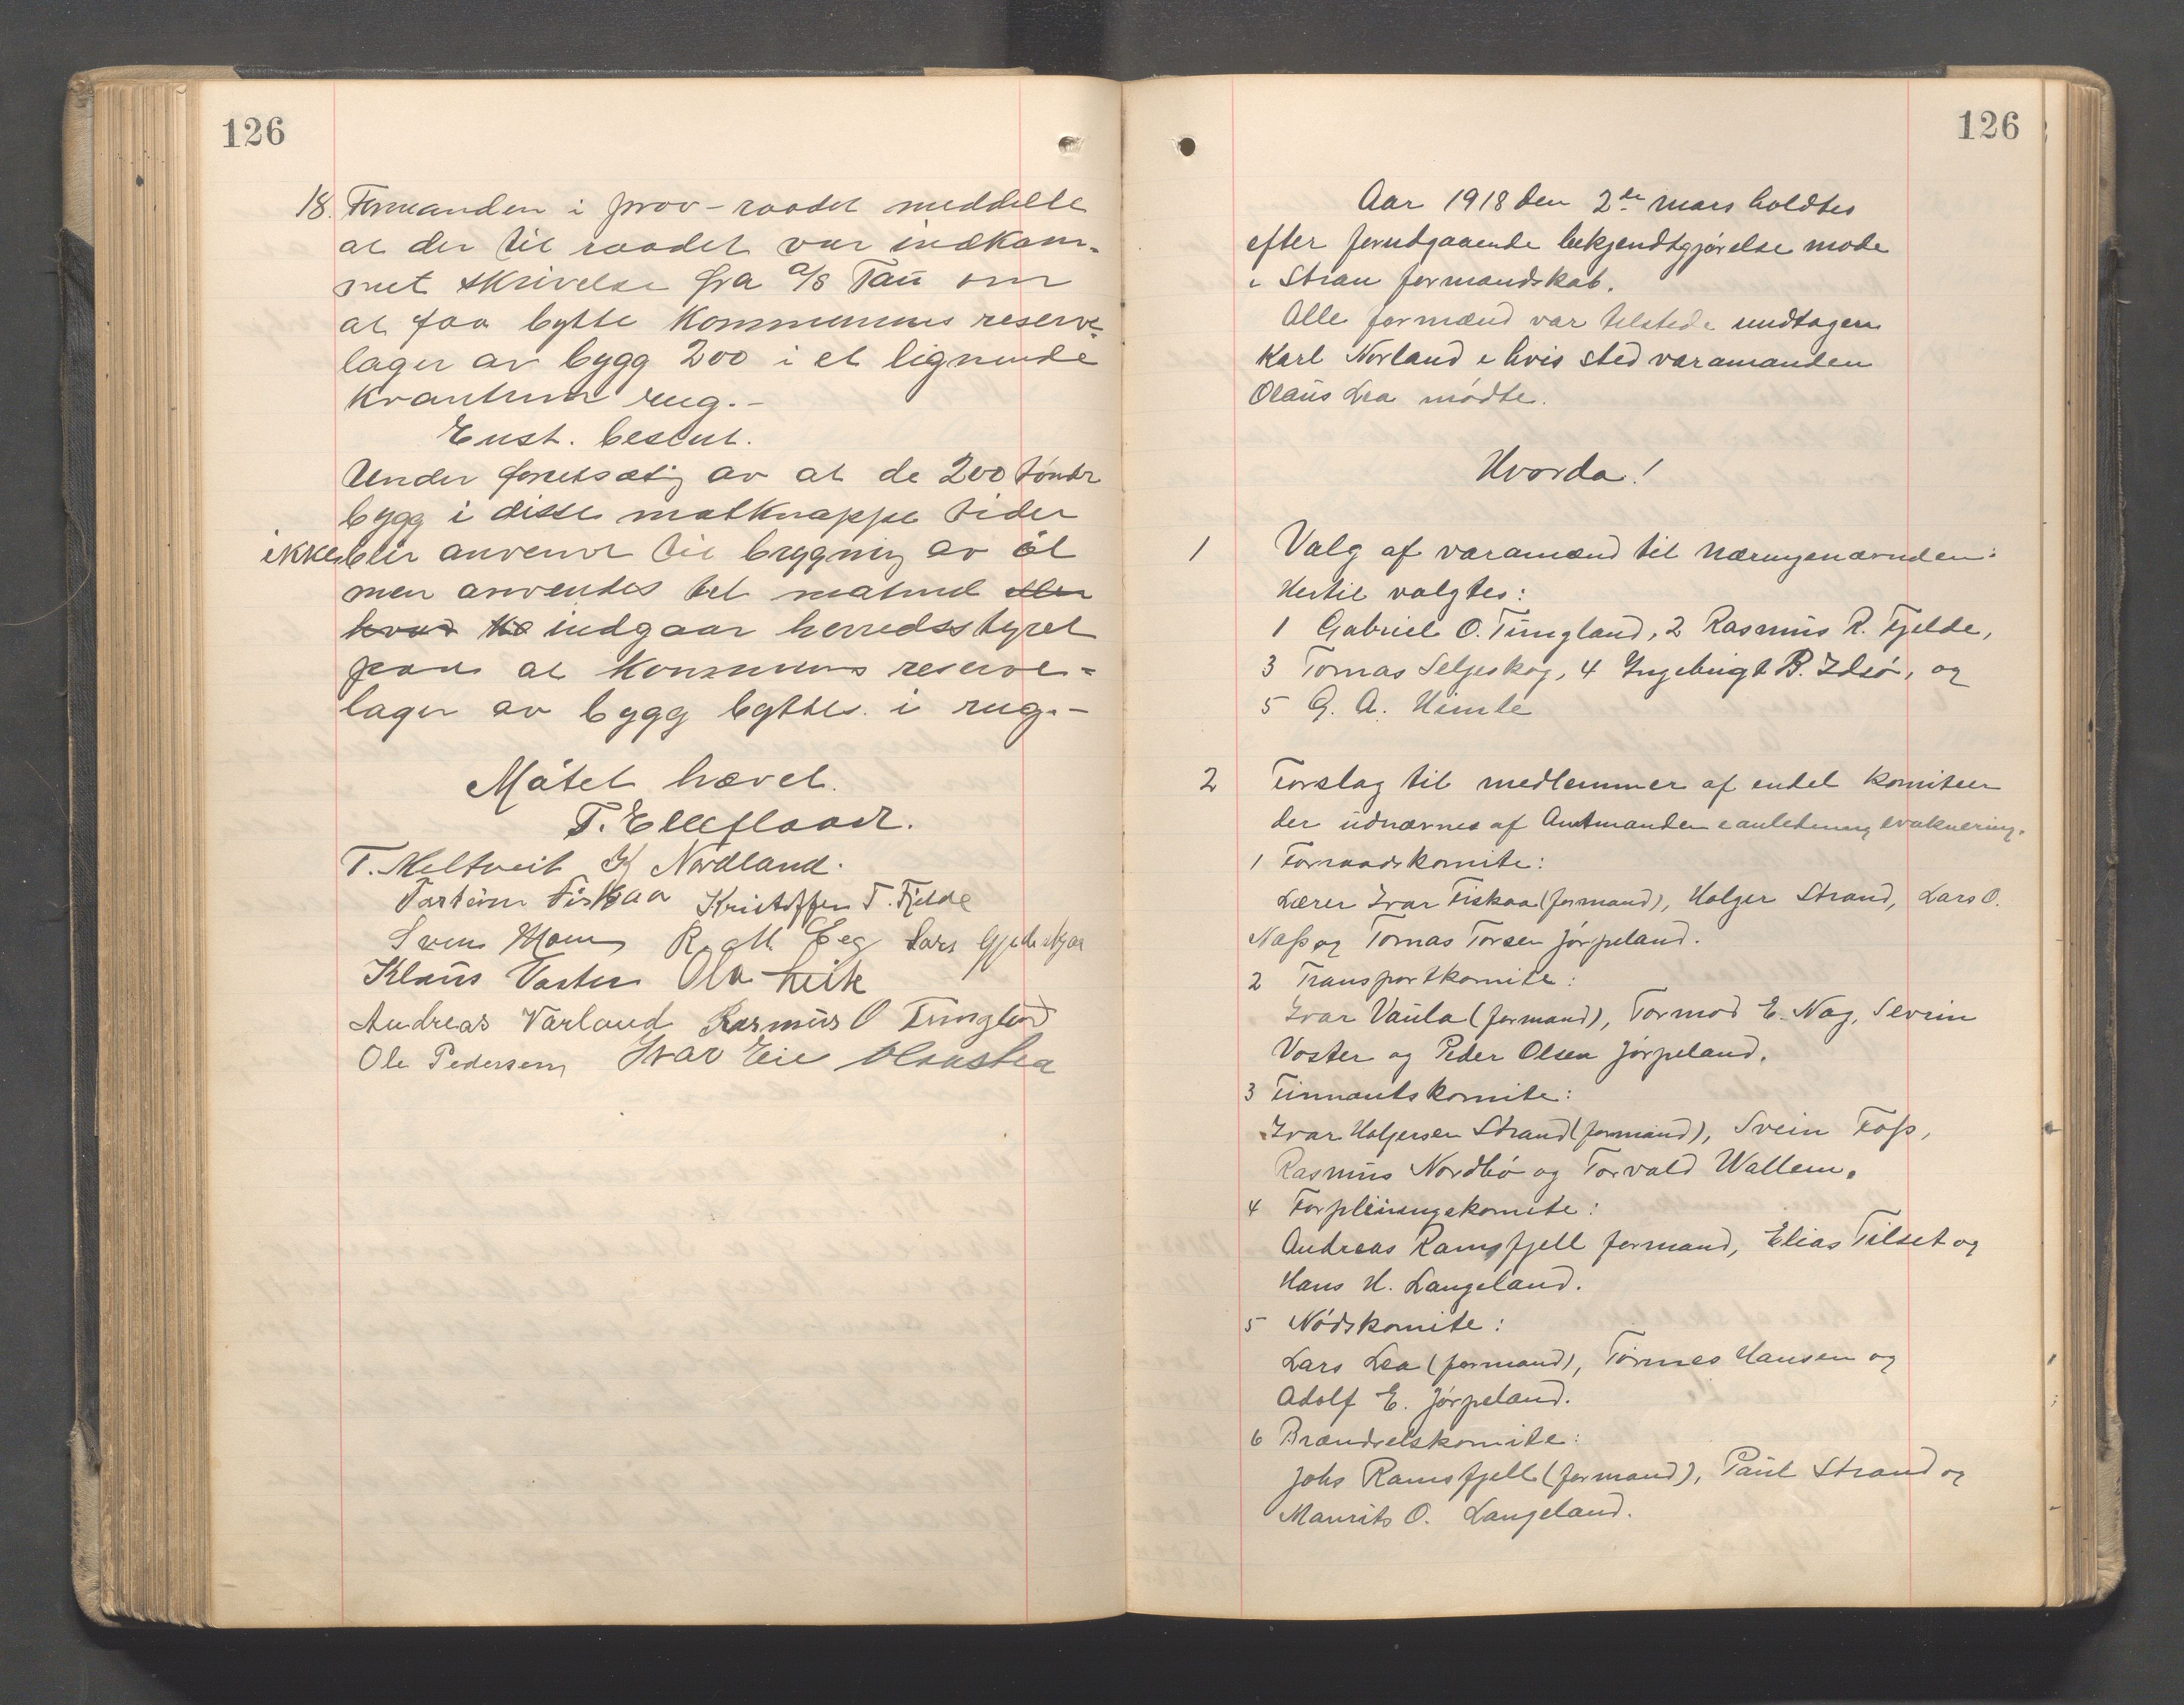 126
18. Formanden i prov-raadet meddelte
at der til raadet var indkom-
met skrivelse fra A/S Tau om
at faa bytte Kommunens reserve-
lager av bygg 200 i et lignende
kvantum rug.-
Enst. beslut.
Under forutsætn av at de 200 tøndr
bygg i disse matknappe tider
ikke blir anvend til brygning av øl
men anvendes til matmel eller
hvad indgaar herredsstyret
paa at Kommunens reserve-
lager av bygg byttes i rug.-
Møtet hævet.
T. Elleflaadt.
T. Meltveit K Nordland.
Torstein Fiskaa Kristoffer T. Fjelde
Svein R. Eeg Lars
Klaus Vaster Ola Leite
Andreas Varland Rasmus O Tungland
Ole Pedersen Ivar Eie Olaus Lea
126
Aar 1918 den 2de mars holdtes
efter forutgaaende bekjendtgjørelse møde
i Stran formandskab.
Alle formænd var tilstede undtagen
Karl Norland i hvis sted varamanden
Olaus Lea mødte.
Hvorda!
1 Valg af varamænd til næringsnævnden:
Hertil valgtes:
1 Gabriel O. Tungland, 2 Rasmus R. Fjelde,
3 Tomas Seljeskog, 4 Ingebrigt B. Idsø, og
5 G. A. Himle
2 Forslag til medlemmer af endel komiteer
der udnævnes af Amtmanden i anledning evakuering.
1 Forraadskomite:
Lærer Ivar Fiskaa (formand), Holger Strand, Lars O.
Næss og Tomas Torsen Jørpeland.
2 Transportkomite:
Ivar Vaula (formand), Tormod E. Nag, Sevrin
Voster og Peder Olsen Jørpeland.
3 Finnantskomite:
Ivar Holgersen Strand (formand), Svein Foss,
Rasmus Nordbø og Torvald Wallem.
4 Forpleiningskomite:
Andreas Ramsfjell formand, Elias Tilset og
Hans H. Langeland.
5 Nødskomite:
Lars Lea (formand), Tørres Hansen og
Adolf E. Jørpeland.
6 Brændselskomite:
Johs Ramsfjell (formand), Paul Strand og
Maurits O. Langeland.